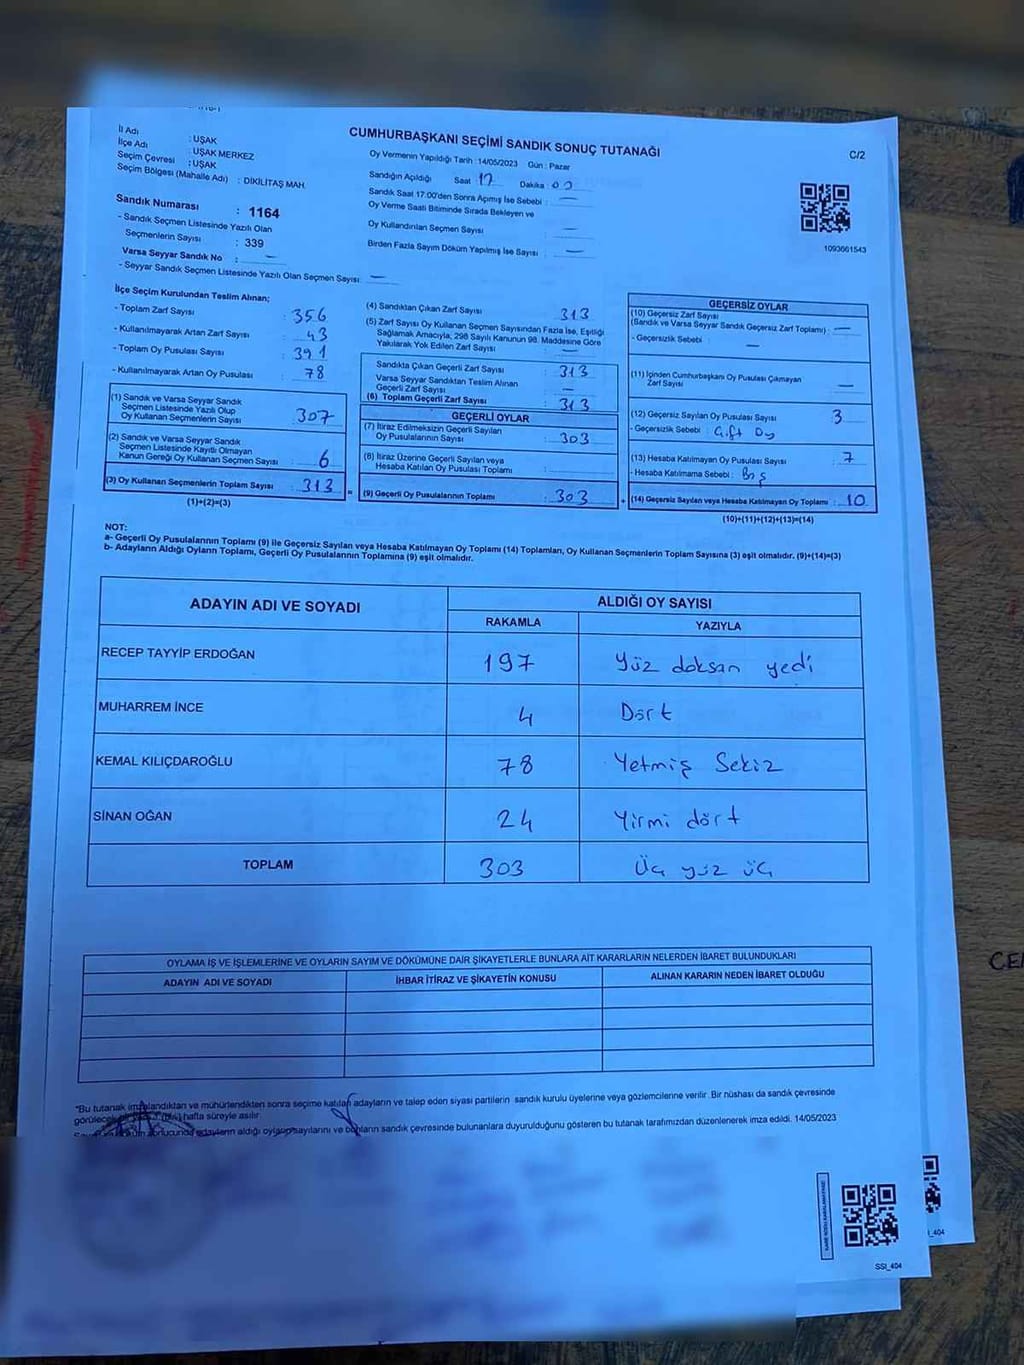 CUMHURBAŞKANI SEÇİMİ SANDIK SONUÇ TUTANAĞI
C/2
İl Adı : UŞAK
İlçe Adı : UŞAK MERKEZ
Seçim Çevresi : UŞAK
Seçim Bölgesi (Mahalle Adı) : DİKİLİTAŞ MAH.
Oy Vermenin Yapıldığı Tarih : 14/05/2023 Gün : Pazar
Sandığın Açıldığı Saat 17 Dakika : 00
Sandık Saat 17:00'den Sonra Açımış İse Sebebi : —
Oy Verme Saati Bitiminde Sırada Bekleyen ve
Oy Kullandırılan Seçmen Sayısı —
Birden Fazla Sayım Döküm Yapılmış İse Sayısı : —
1093661543
Sandık Numarası : 1164
- Sandık Seçmen Listesinde Yazılı Olan
Seçmenlerin Sayısı : 339
Varsa Seyyar Sandık No : —
- Seyyar Sandık Seçmen Listesinde Yazılı Olan Seçmen Sayısı: —
İlçe Seçim Kurulundan Teslim Alınan;
- Toplam Zarf Sayısı : 356
- Kullanılmayarak Artan Zarf Sayısı : 43
- Toplam Oy Pusulası Sayısı : 391
- Kullanılmayarak Artan Oy Pusulası : 78
(1) Sandık ve Varsa Seyyar Sandık
Seçmen Listesinde Yazılı Olup
Oy Kullanan Seçmenlerin Sayısı : 307
(2) Sandık ve Varsa Seyyar Sandık
Seçmen Listesinde Kayıtlı Olmayan
Kanun Gereği Oy Kullanan Seçmen Sayısı : 6
(3) Oy Kullanan Seçmenlerin Toplam Sayısı : 313
(1)+(2)=(3)
(4) Sandıktan Çıkan Zarf Sayısı : 313
(5) Zarf Sayısı Oy Kullanan Seçmen Sayısından Fazla İse, Eşitliği
Sağlamak Amacıyla, 298 Sayılı Kanunun 98. Maddesine Göre
Yakılarak Yok Edilen Zarf Sayısı : —
Sandıkta Çıkan Geçerli Zarf Sayısı : 313
Varsa Seyyar Sandıktan Teslim Alınan
Geçerli Zarf Sayısı : —
(6) Toplam Geçerli Zarf Sayısı : 313
GEÇERLİ OYLAR
(7) İtiraz Edilmeksizin Geçerli Sayılan
Oy Pusulalarının Sayısı : 303
(8) İtiraz Üzerine Geçerli Sayılan veya
Hesaba Katılan Oy Pusulası Toplamı :
(9) Geçerli Oy Pusulalarının Toplamı : 303
GEÇERSİZ OYLAR
(10) Geçersiz Zarf Sayısı
(Sandık ve Varsa Seyyar Sandık Geçersiz Zarf Toplamı) : —
- Geçersizlik Sebebi : —
(11) İçinden Cumhurbaşkanı Oy Pusulası Çıkmayan
Zarf Sayısı : —
(12) Geçersiz Sayılan Oy Pusulası Sayısı : 3
- Geçersizlik Sebebi : Çift Oy
(13) Hesaba Katılmayan Oy Pusulası Sayısı : 7
- Hesaba Katılmama Sebebi : Boş
+ (14) Geçersiz Sayılan veya Hesaba Katılmayan Oy Toplamı : 10
(10)+(11)+(12)+(13)=(14)
NOT:
a- Geçerli Oy Pusulalarının Toplamı (9) ile Geçersiz Sayılan veya Hesaba Katılmayan Oy Toplamı (14) Toplamları, Oy Kullanan Seçmenlerin Toplam Sayısına (3) eşit olmalıdır. (9)+(14)=(3)
b- Adayların Aldığı Oyların Toplamı, Geçerli Oy Pusulalarının Toplamına (9) eşit olmalıdır.
ADAYIN ADI VE SOYADI ALDIĞI OY SAYISI
RAKAMLA YAZIYLA
RECEP TAYYİP ERDOĞAN 197 Yüz doksan yedi
MUHARREM İNCE 4 Dört
KEMAL KILIÇDAROĞLU 78 Yetmiş Sekiz
SİNAN OĞAN 24 Yirmi dört
TOPLAM 303 Üç yüz üç
OYLAMA İŞ VE İŞLEMLERİNE VE OYLARIN SAYIM VE DÖKÜMÜNE DAİR ŞİKAYETLERLE BUNLARA AİT KARARLARIN NELERDEN İBARET BULUNDUKLARI
ADAYIN ADI VE SOYADI İHBAR İTİRAZ VE ŞİKAYETİN KONUSU ALINAN KARARIN NEDEN İBARET OLDUĞU
"Bu tutanak imzalandıktan ve mühürlendikten sonra seçime katılan adayların ve talep eden siyasi partilerin sandık kurulu üyelerine veya gözlemcilerine verilir. Bir nüshası da sandık çevresinde
görülecek hafta süreyle asılır.
adayların aldığı oyların sayılarını ve bunların sandık çevresinde bulunanlara duyurulduğunu gösteren bu tutanak tarafımızdan düzenlenerek imza edildi. 14/05/2023
SSI_404
_404
CE